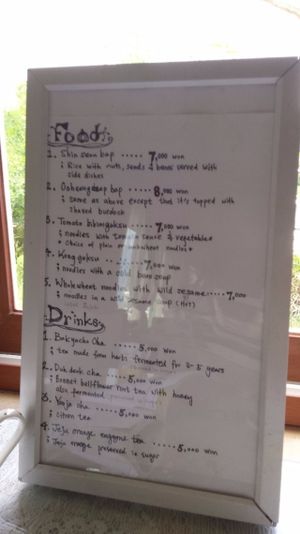 Food
1. Shin seon bap ..... 7,000 won
: Rice with nuts, seeds & beans served with
side dishes
2. bap ..... 8,000 won
: same as above except that it's topped with
burdock
3. Tomato bibimguksu ..... 7,000 won
: noodles with tomato sauce & vegetables
* choice of plain or wheat noodles *
4. Kong guksu ..... 7,000 won
: noodles with a cold bean soup
5. Wholewheat noodles with wild sesame ..... 7,000
: noodles in a wild sesame soup (Hot)
Drinks
1. Cha ..... 5,000 won
: tea made from herbs fermented for 3-5 years
2. cha ..... 5,000 won
: Bonnet bellflower root tea with honey
also fermented
3. Yuja cha ..... 5,000 won
: Citron tea
4. Jeju orange tea ..... 5,000 won
: Jeju orange preserved in sugar